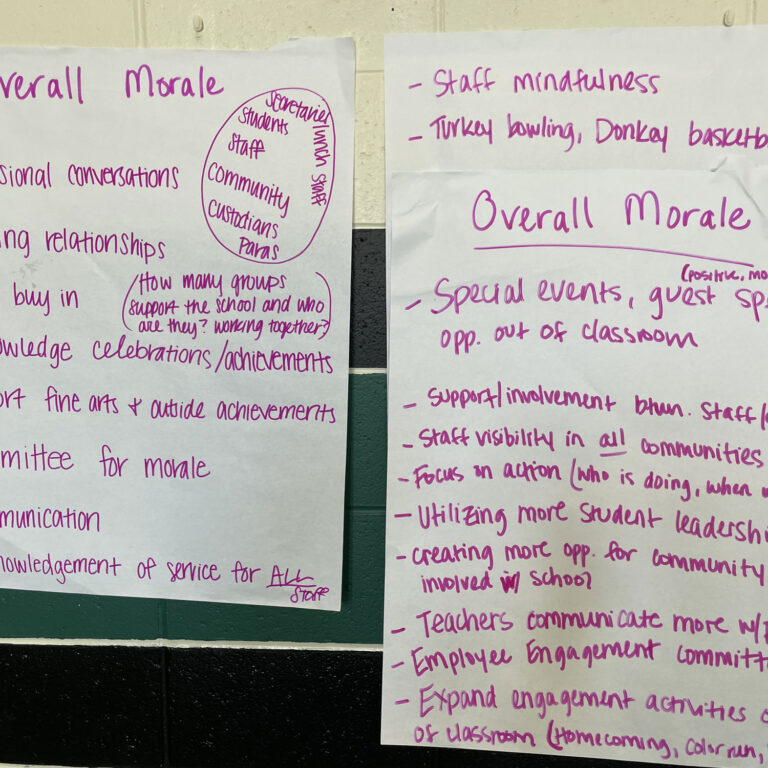 verall Morale
Secretaries/lunch staff
Students
Staff
Community
Custodians
Paras
sional conversations
ing relationships
buy in
(How many groups
support the school and who
are they? working together?)
owledge celebrations/achievements
ort fine arts + outside achievements
mittee for morale
munication
knowledgement of service for ALL
Staff
- Staff mindfulness
- Turkey bowling, Donkey basketb
Overall Morale
(positive, mo
- Special events, guest sp
opp. out of classroom
- Support/involvement btwn. staff/
- Staff visibility in all communities
- Focus on action (who is doing, when
- Utilizing more student leadershi
- Creating more opp. for community
involved w/ school
- Teachers communicate more w/
- Employee Engagement committ
- Expand engagement activities o
of classroom (Homecoming, color run,